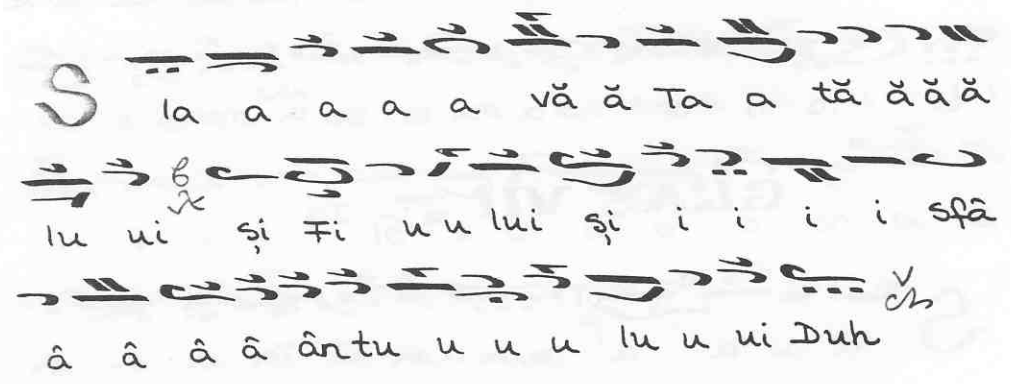 S la a a a a vă ă Ta a tă ă ă ă
lu ui și Fi u u lui și i i i i sfâ
â â â â ântu u u u lu u ui Duh